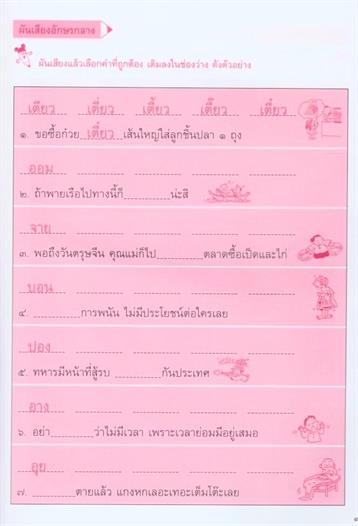 ผันเสียงอักษรกลาง
ผันเสียงแล้วเลือกคำที่ถูกต้อง เติมลงในช่องว่าง ดังตัวอย่าง
เตียว เตี่ยว เตี้ยว เตี๊ยว เตี๋ยว
๑. ขอซื้อก๋วย เตี๋ยว เส้นใหญ่ใส่ลูกชิ้นปลา ๑ ถุง
ออม
๒. ถ้าพายเรือไปทางนี้ก็__________น่ะสิ
จาย
๓. พอถึงวันตรุษจีน คุณแม่ก็ไป__________ตลาดซื้อเป็ดและไก่
บอน
๔. __________การพนัน ไม่มีประโยชน์ต่อใครเลย
ปอง
๕. ทหารมีหน้าที่สู้รบ __________กันประเทศ
อาง
๖. อย่า__________ว่าไม่มีเวลา เพราะเวลาย่อมมีอยู่เสมอ
อุย
๗. __________ตายแล้ว แกงหกเลอะเทอะเต็มโต๊ะเลย